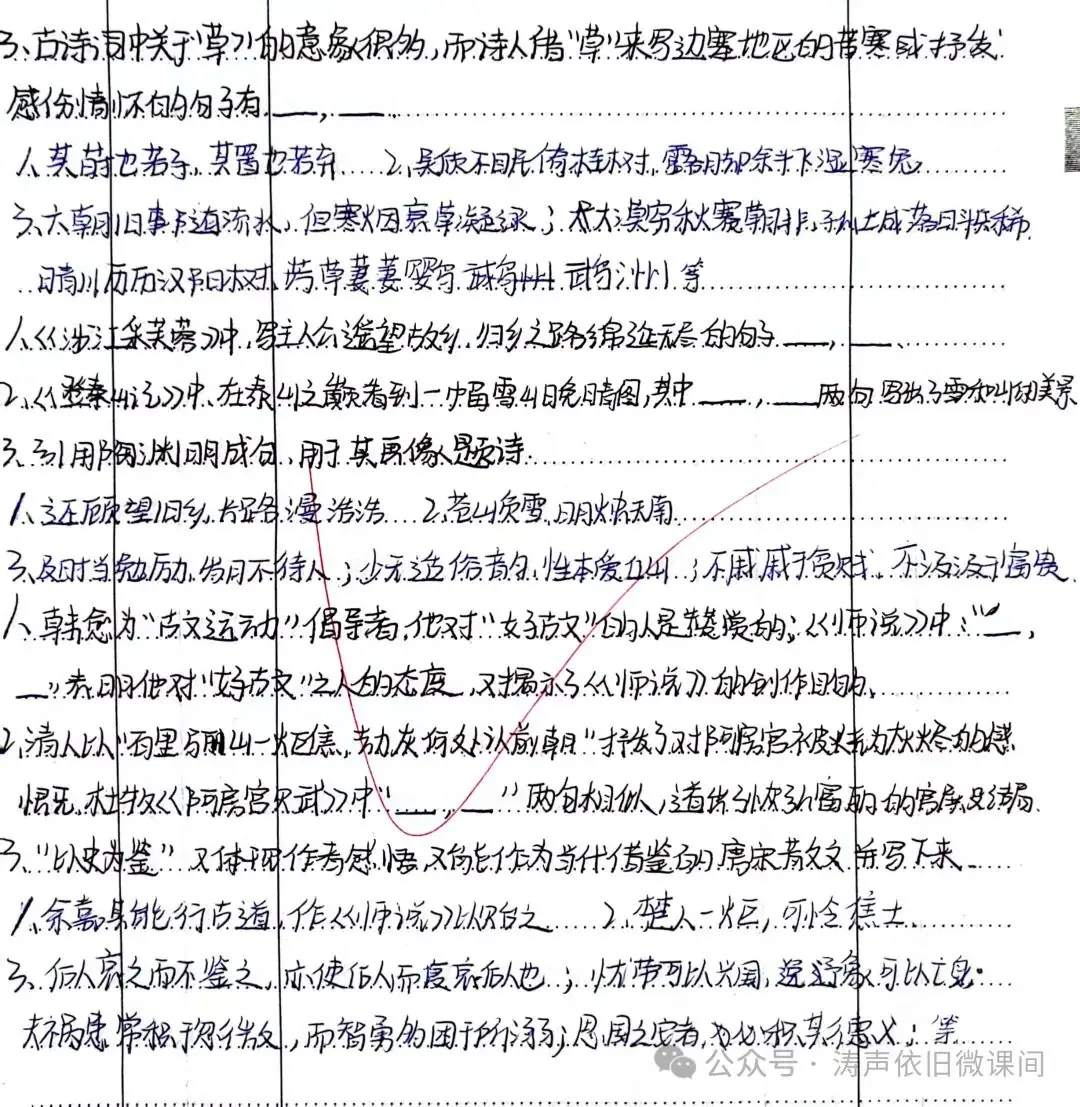 3、古诗词中关于"草"的意象很多,而诗人借"草"来写边塞地区的苦寒或抒发
感伤情怀的句子有 __,__.
1、其莳也若子,其置也若弃 2、吴质不眠倚桂树,露脚斜飞湿寒兔
3、六朝旧事随流水,但寒烟衰草凝绿;大漠穷秋塞草腓,孤城落日斗兵稀
晴川历历汉阳树,芳草萋萋鹦鹉洲等
1、《涉江采芙蓉》中,写主人公遥望故乡,归乡之路绵延无尽的句子__,__、
2、《登泰山记》中、在泰山之巅看到一幅雪山晚晴图,其中__,__两句写出了雪和山的美景
3、引用陶渊明成句、用于其画像题诗.
1、还顾望旧乡,长路漫浩浩 2、苍山负雪,明烛天南
3、及时当勉励,岁月不待人;少无适俗韵,性本爱丘山;不戚戚于贫贱,不汲汲于富贵.
1、韩愈为"古文运动"倡导者,他对"好古文"的人是赞赏的;《师说》中:"__,
__"表明他对"好古文"之人的态度,又揭示了《师说》的创作目的.
2、清人以"百里骊山一炬焦,劫灰何处认前朝"抒发了对阿房宫被烧为灰烬的感
慨,杜牧《阿房宫赋》中"__,__"两句相似,道出了恢弘富丽的宫殿结局.
3、"以史为鉴"又体现作者感悟又能作为当代借鉴的唐宋散文并写下来
1、余嘉其能行古道,作《师说》以贻之 2、楚人一炬,可怜焦土.
3、后人哀之而不鉴之,亦使后人而复哀后人也;忧劳可以兴国,逸豫可以亡身;
夫祸患常积于忽微,而智勇多困于所溺;思国之安者,必积其德义;等
公众号·涛声依旧微课间